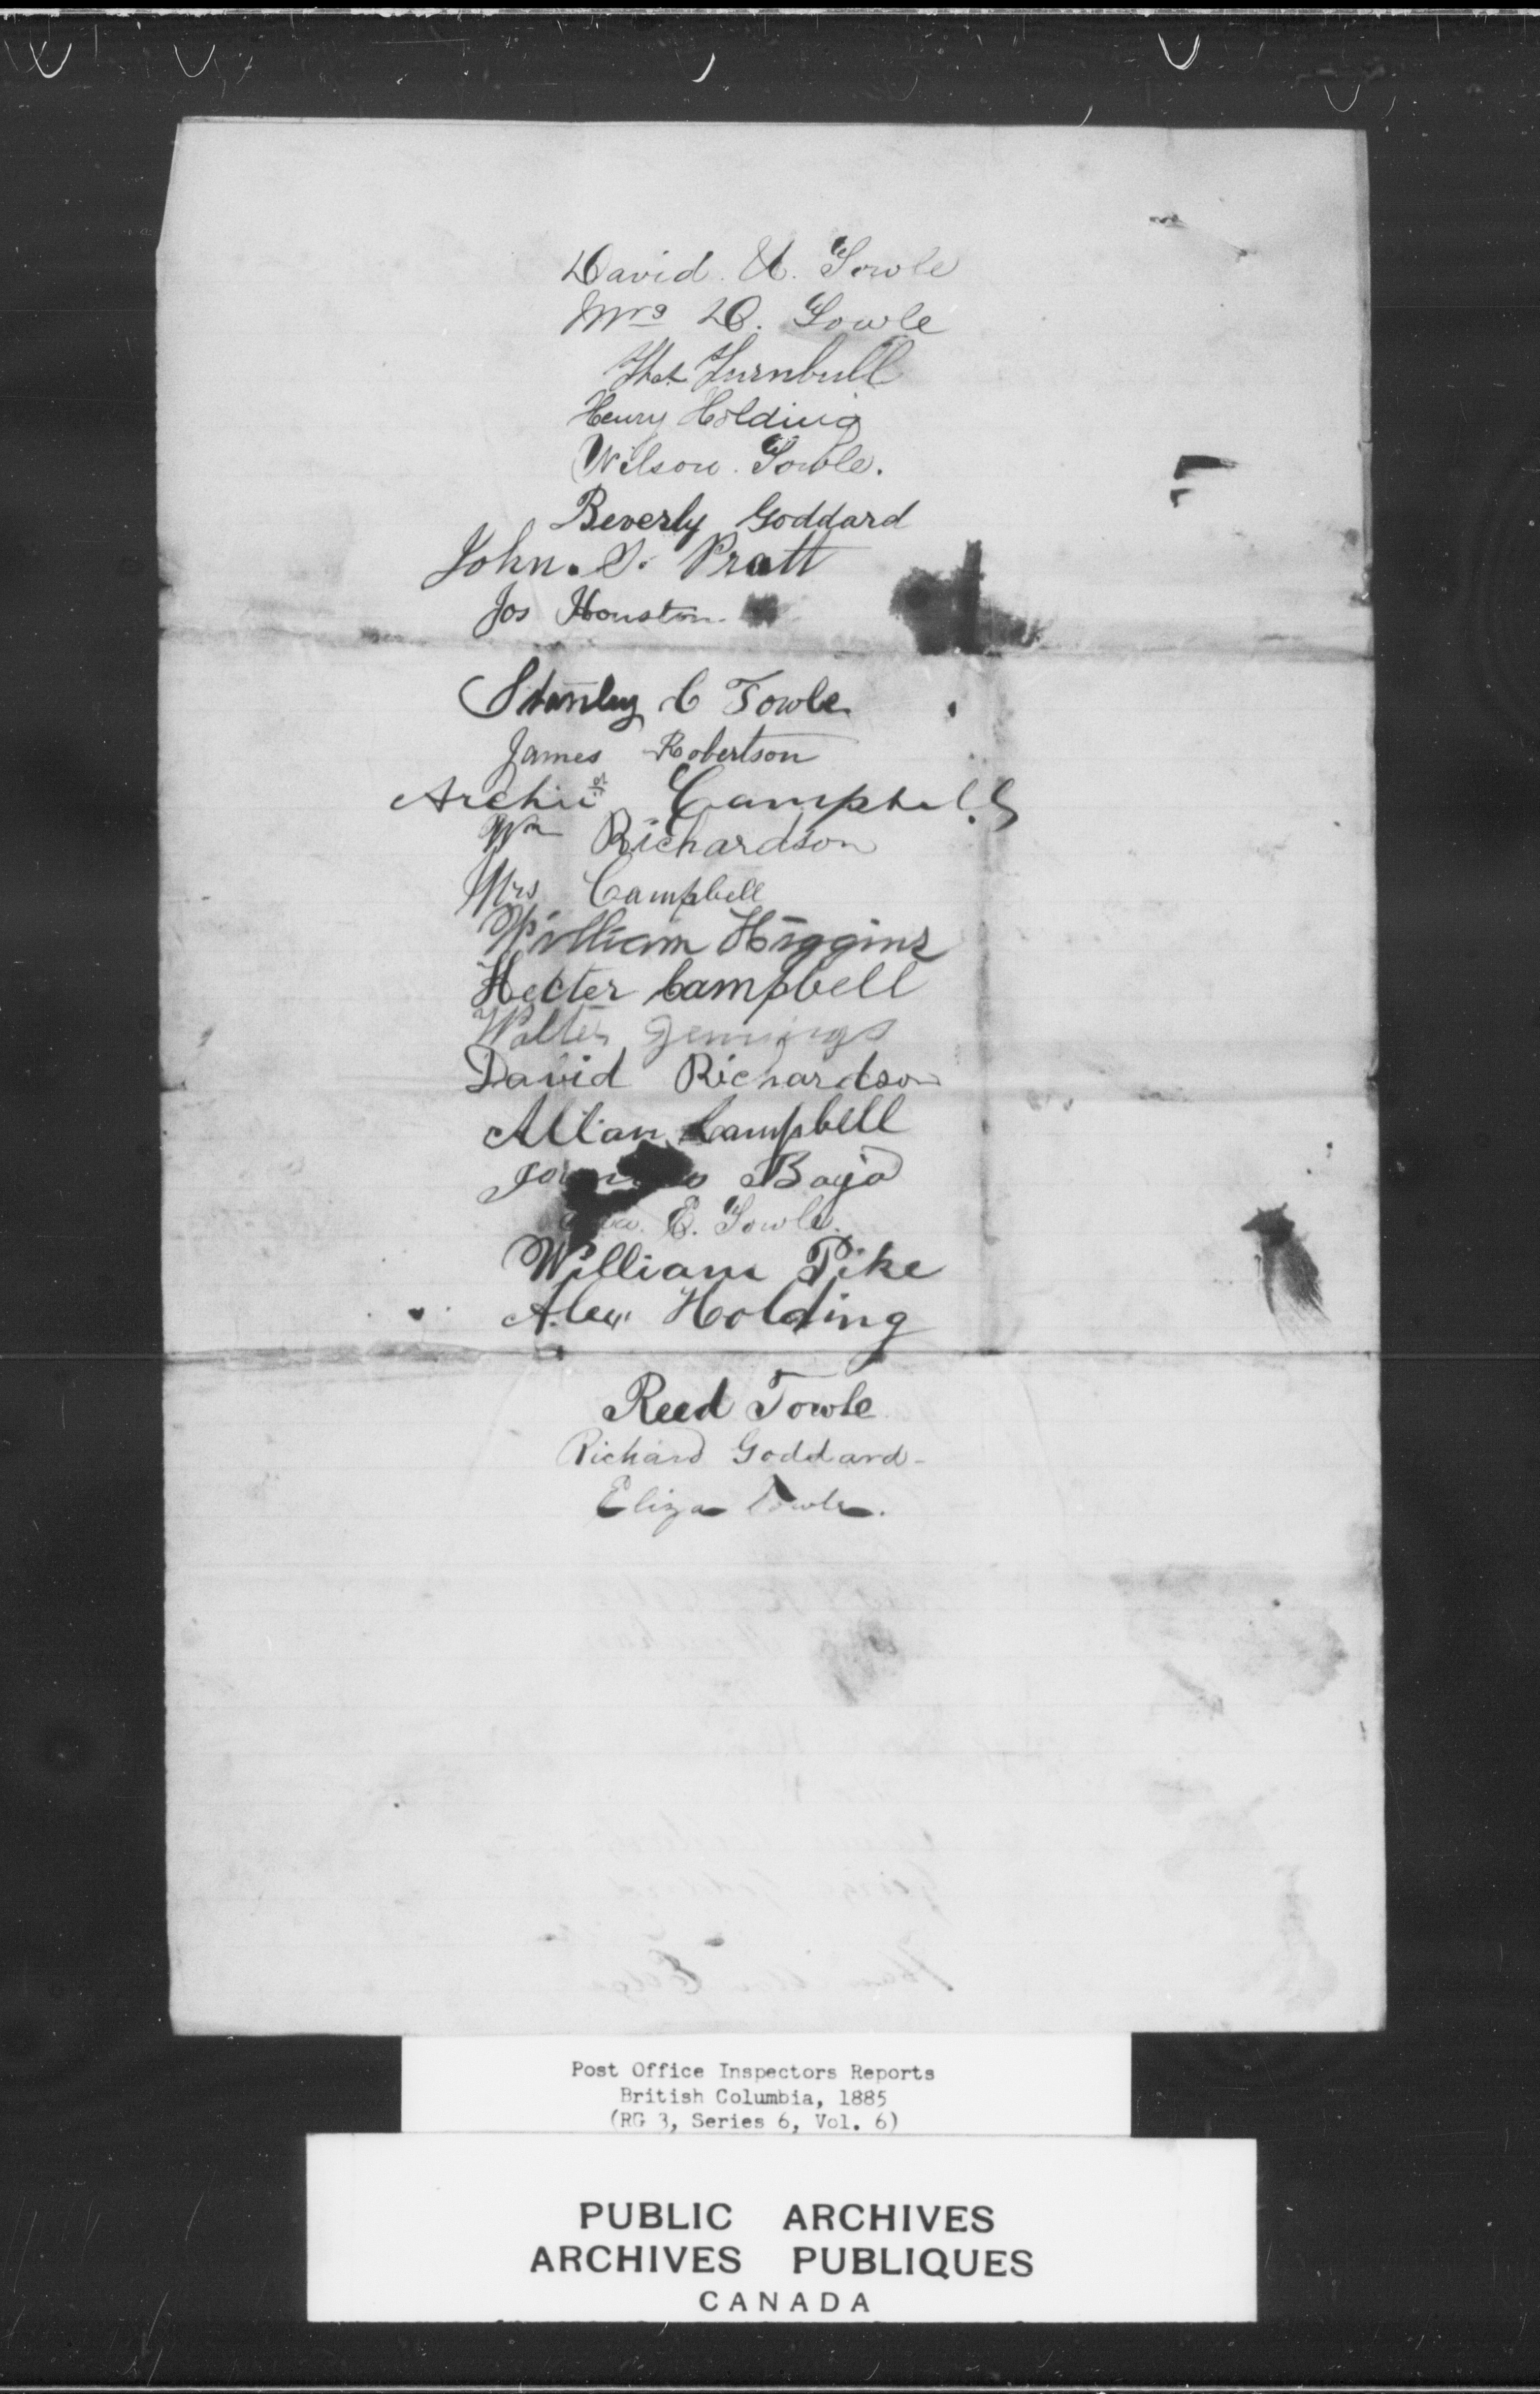 David. U. Towle
Mrs D. Towle
Thos Turnbull
Henry Holding
Wilson. Towle.
Beverly Goddard
John. T. Pratt
Jos Houston
Stanley C Towle
James Robertson
Archie Campbell
Wm Richardson
Mrs Campbell
William Higgins
Hecter Campbell
Walter Jennings
David Richardson
Allan Campbell
E. Towle.
William Pike
Alex Holding
Reed Towle
Richard Goddard-
Eliza Towle.
Post Office Inspectors Reports
British Columbia, 1885
(RG 3, Series 6, Vol. 6)
PUBLIC ARCHIVES
ARCHIVES PUBLIQUES
CANADA